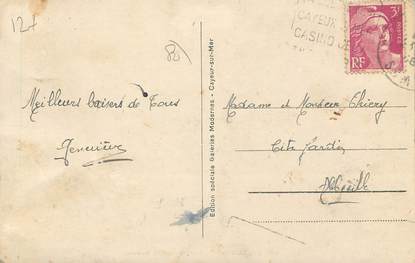 12+
CAYEUX
CASINO
3F
POSTES
RF
Meilleurs baisers de Tous
Geneviève
Edition spéciale Galeries Modernes - Cayeux-sur-Mer
Madame et Monsieur Thiery
Cité Jardin
Abbeville